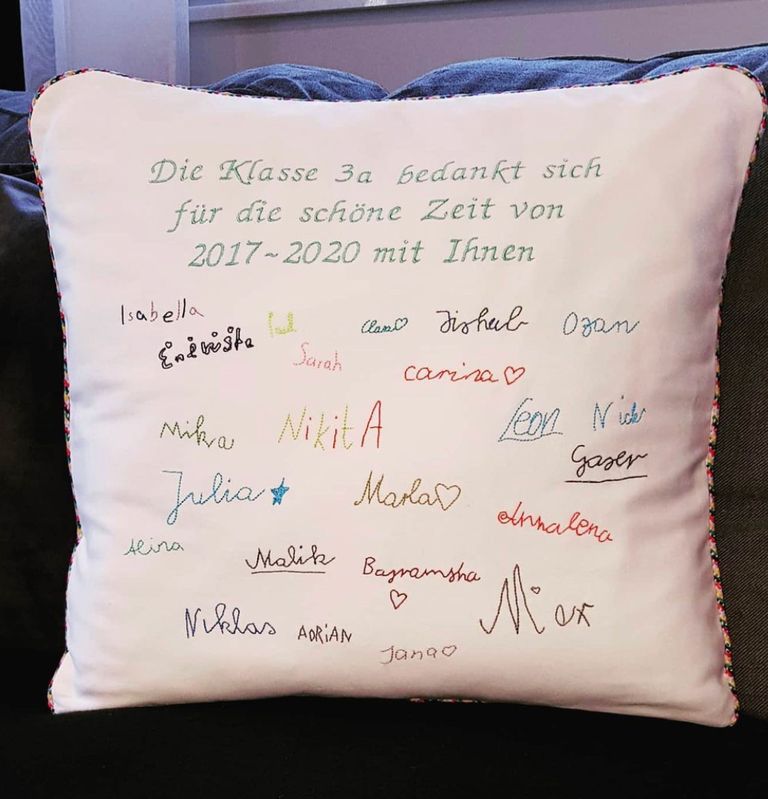 Die Klasse 3a bedankt sich
für die schöne Zeit von
2017~2020 mit Ihnen
Isabella
Clara♡
Ozan
Sarah
Carina♡
Mika
NikitA
Leon
Nick
Gaser
Julia★
Marla♡
Annalena
Alina
Malik
Bayramsha
♡
Niklas
ADRiAN
Jana♡